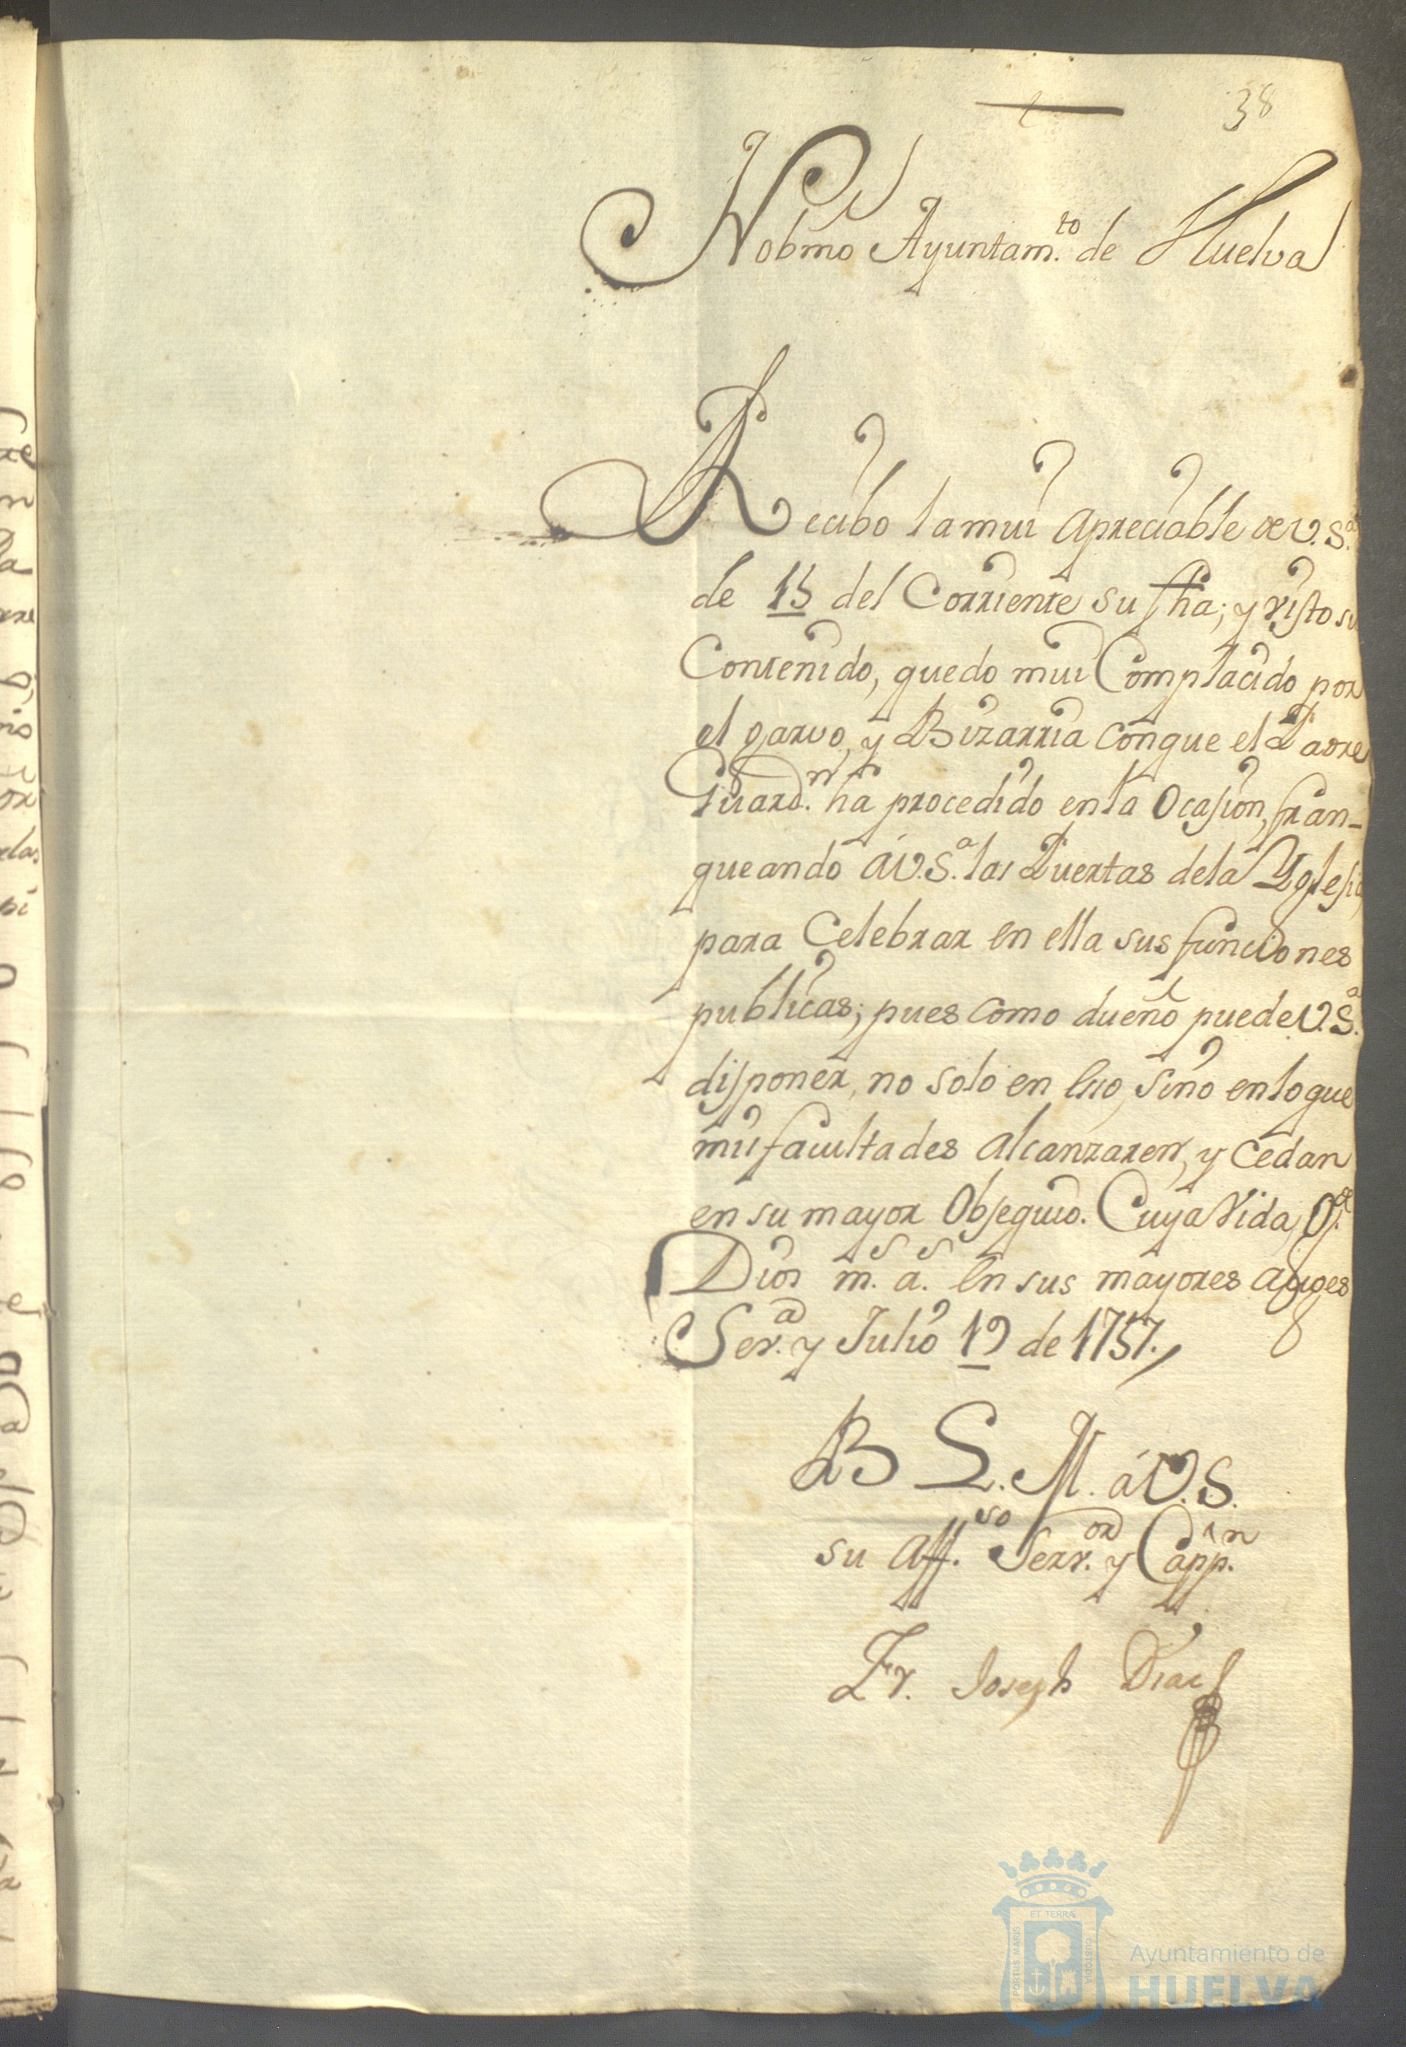 38
Nobmo Ayuntam.to de Huelva
Recibo la mui apreciable de V.S.a
de 15 del Corriente su fha; y visto su
Contenido, quedo mui Complacido por
el garvo, y Bizarria con que el Padre
Guard.n ha procedido en la Ocasion, fran-
queando á V.S.a las Puertas de la Yglesia,
para Celebrar en ella sus funciones
publicas; pues como dueño puede V.S.a
disponer, no solo en esso, sino en lo que
mis facultades alcanzaren, y cedan
en su mayor Obsequio. Cuya Vida g.de
Dios m.s a.s en sus mayores auges
Sev.a y Julio 19 de 1757.,
B L. M. á V.S.
su aff.so Serv.or y Capp.n
Fr. Joseph Diaz
ET TERRÆ
PORTUS MARIS
CUSTODIA
Ayuntamiento de
HUELVA